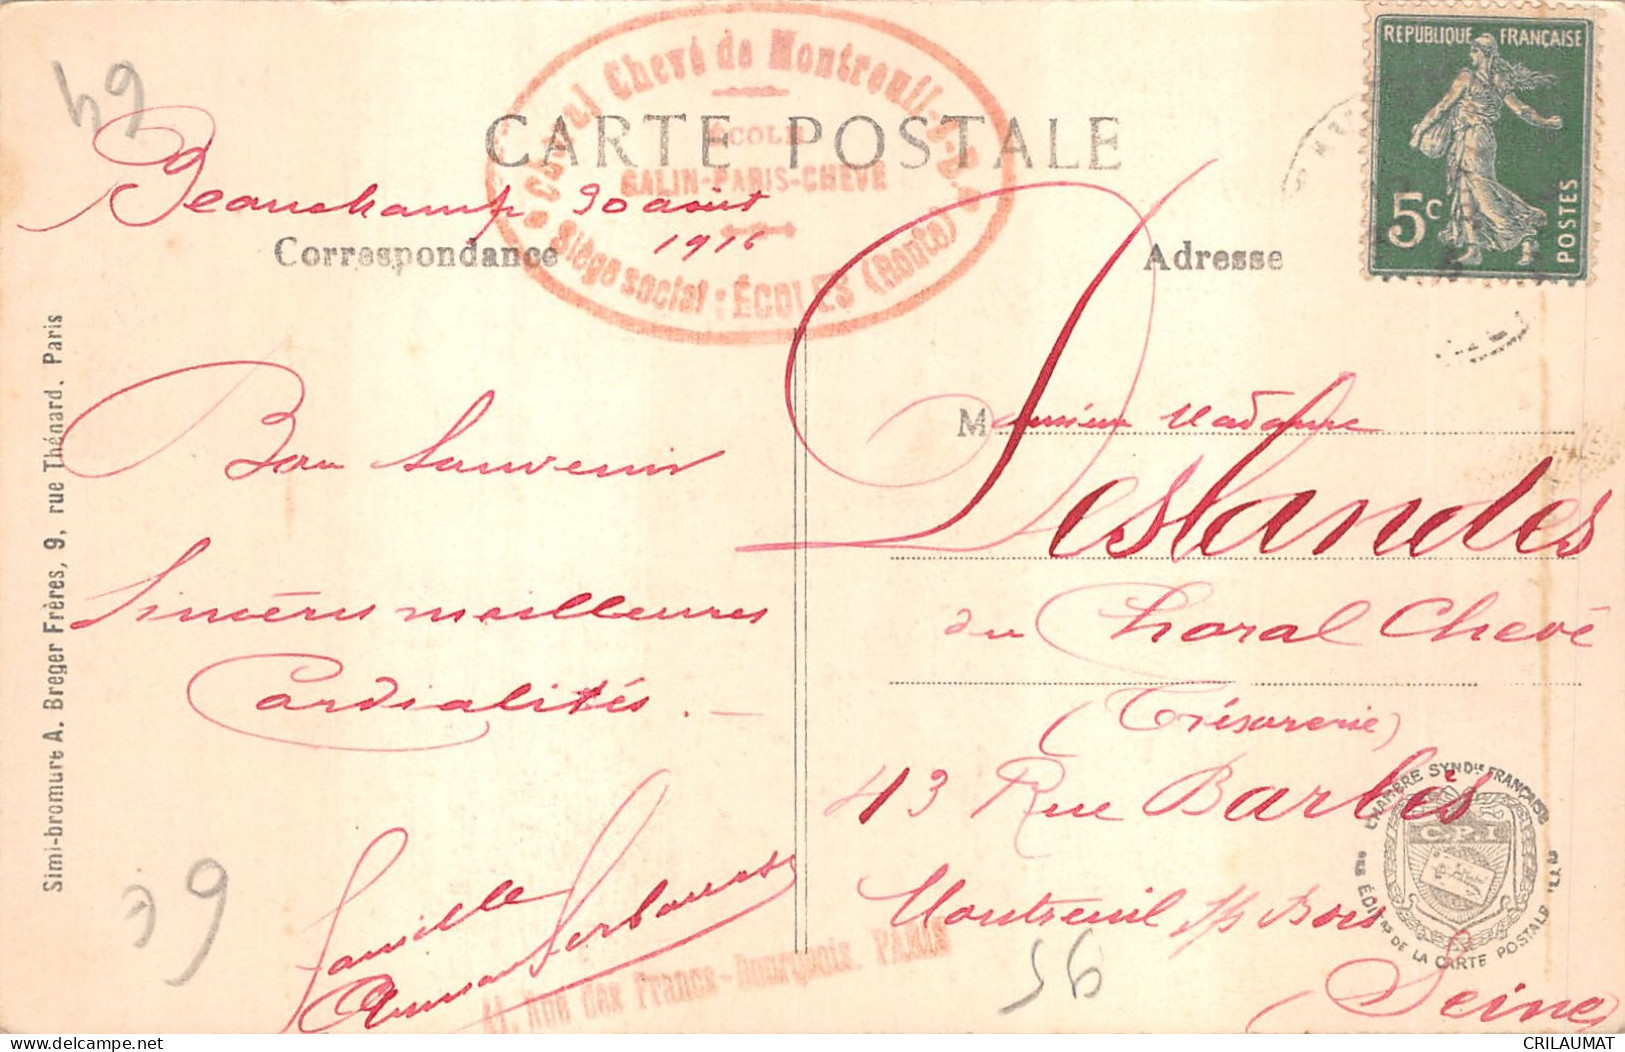 64
CARTE POSTALE
Choral Chevé de Montreuil-s-B.
ÉCOLE
GALIN-PARIS-CHEVÉ
Siège social : ÉCOLES (Ronte)
Beauchamp 30 août
1916
Correspondance
Adresse
RÉPUBLIQUE FRANÇAISE
5c
POSTES
Bon Souvenir
Sincères meilleures
Cordialités. —
Famille
Monsieur Madame
Deslandes
du Choral Chevé
(Trésorerie)
43 Rue Barbès
Montreuil s/s Bois
(Seine)
41, Rue des Francs-Bourgeois, PARIS
Simi-bromure A. Breger Frères, 9, rue Thénard, Paris
CHAMBRE SYNDle FRANÇAISE
DES ÉDITrs DE LA CARTE POSTALE ILLtée
C.P.I
39
56
CRILAUMAT